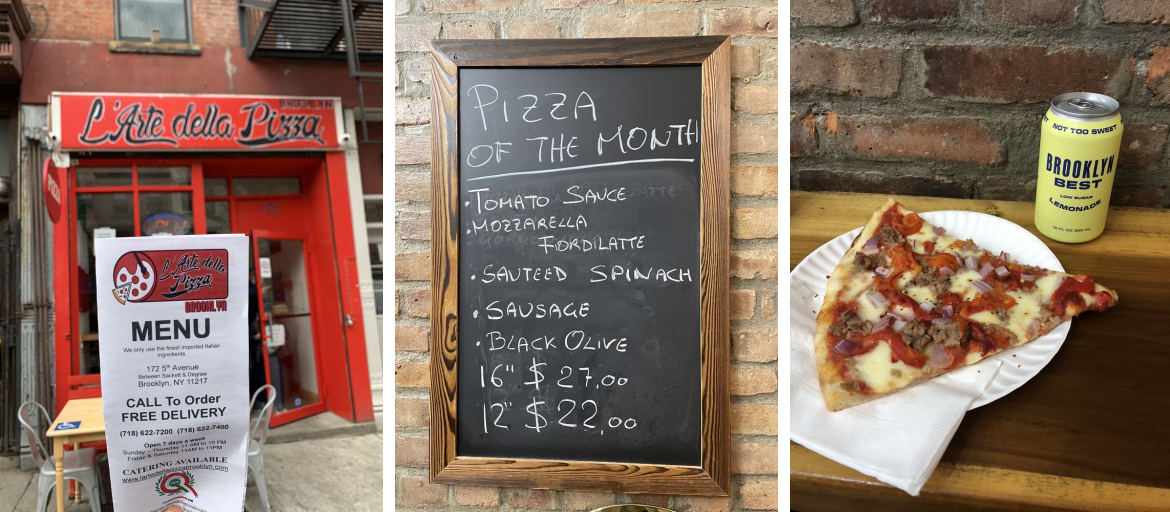 BROOKLYN
L'Arte della Pizza
L'Arte della
Pizza
BROOKLYN
MENU
We only use the finest imported Italian
ingredients.
172 5th Avenue
Between Sackett & Degraw
Brooklyn, NY 11217
CALL To Order
FREE DELIVERY
(718) 622-7200 (718) 622-7400
Open 7 days a week
Sunday - Thursday 11 AM to 10 PM
Friday & Saturday 11AM to 11PM
CATERING AVAILABLE
www.lartedellapizzabrooklyn.com
PIZZA
OF THE MONTH
• TOMATO SAUCE
• MOZZARELLA
FIORDILATTE
• SAUTEED SPINACH
• SAUSAGE
• BLACK OLIVE
16" $ 27,00
12" $ 22,00
NOT TOO SWEET
BROOKLYN
BEST
LOW SUGAR
LEMONADE
12 FL OZ (355 mL)